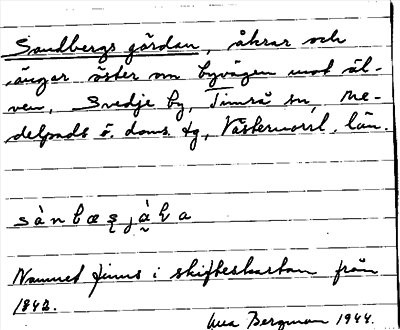 Sandbergs gärdan, åkrar och
ängar öster om byvägen mot äl-
ven, Svedje by, Timrå sn, Me-
delpads ö. doms. tg, Västernorrl. län.
Namnet finns i skifteskartan från
1842.
Bergman 1944.